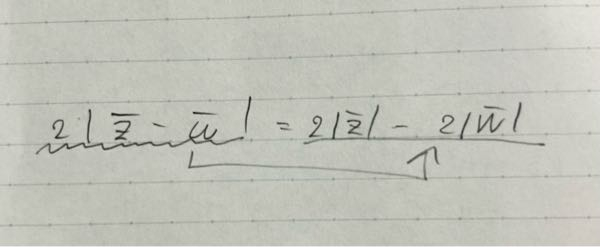 2|z̅ - w̅| = 2|z̅| - 2|w̅|